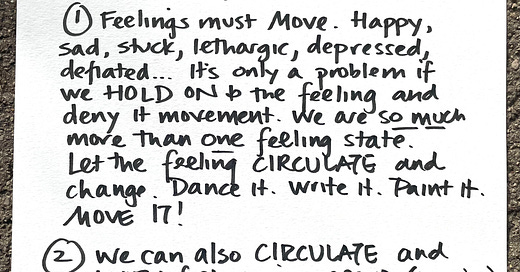 ① Feelings must Move. Happy,
sad, stuck, lethargic, depressed,
deflated... It's only a problem if
we HOLD ON to the feeling and
deny it movement. We are so much
more than one feeling state.
Let the feeling CIRCULATE and
change. Dance it. Write it. Paint it.
MOVE IT!
② We can also CIRCULATE and